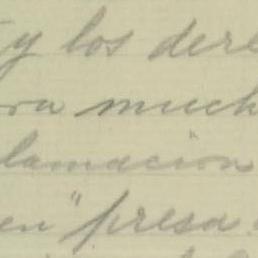 y los dere
ra much
lamacion
en "presa